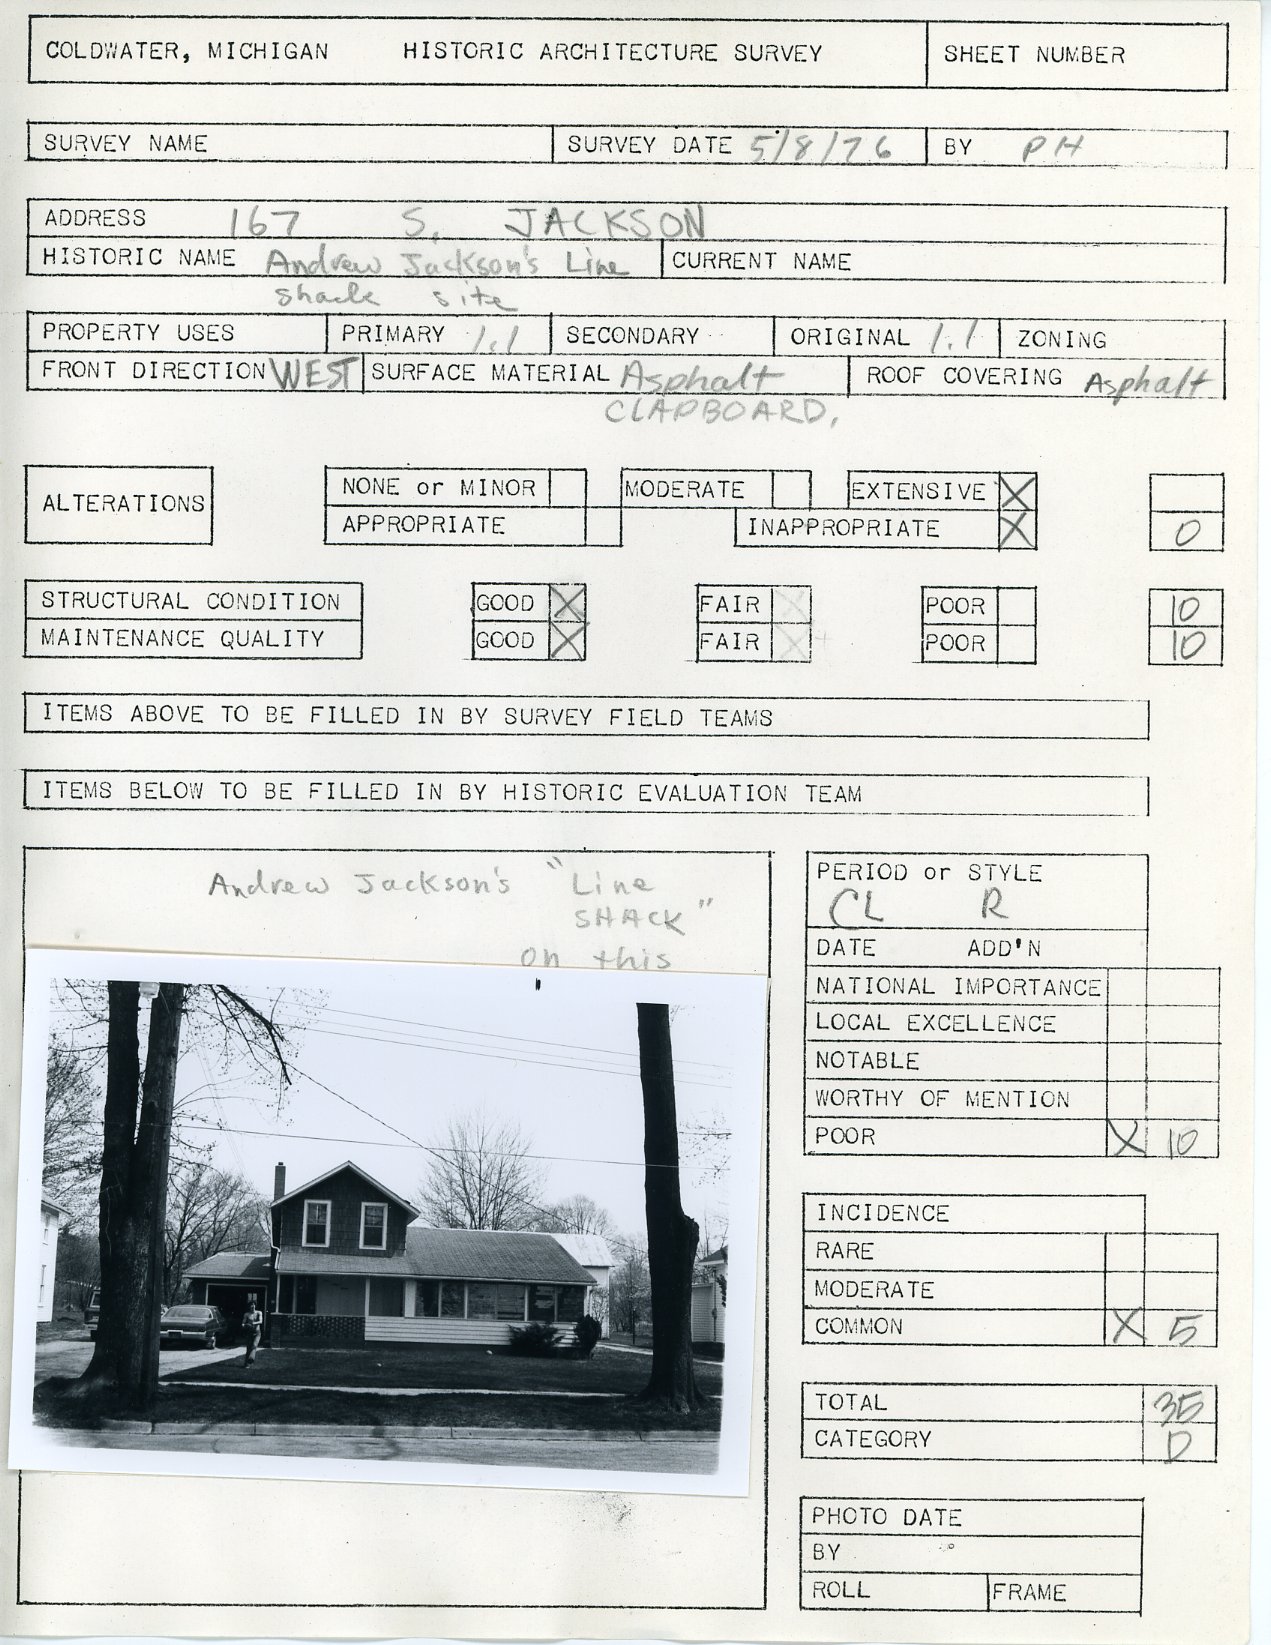 COLDWATER, MICHIGAN HISTORIC ARCHITECTURE SURVEY SHEET NUMBER
SURVEY NAME SURVEY DATE 5/8/76 BY PH
ADDRESS 167 S. JACKSON
HISTORIC NAME Andrew Jackson's Line CURRENT NAME
shack site
PROPERTY USES PRIMARY 1.1 SECONDARY ORIGINAL 1.1 ZONING
FRONT DIRECTION WEST SURFACE MATERIAL Asphalt ROOF COVERING Asphalt
CLAPBOARD,
ALTERATIONS NONE or MINOR MODERATE EXTENSIVE X
APPROPRIATE INAPPROPRIATE X 0
STRUCTURAL CONDITION GOOD X FAIR X POOR 10
MAINTENANCE QUALITY GOOD X FAIR X POOR 10
ITEMS ABOVE TO BE FILLED IN BY SURVEY FIELD TEAMS
ITEMS BELOW TO BE FILLED IN BY HISTORIC EVALUATION TEAM
Andrew Jackson's "Line
SHACK"
on this
PERIOD or STYLE
CL R
DATE ADD'N
NATIONAL IMPORTANCE
LOCAL EXCELLENCE
NOTABLE
WORTHY OF MENTION
POOR X 10
INCIDENCE
RARE
MODERATE
COMMON X 5
TOTAL 35
CATEGORY D
PHOTO DATE
BY
ROLL FRAME